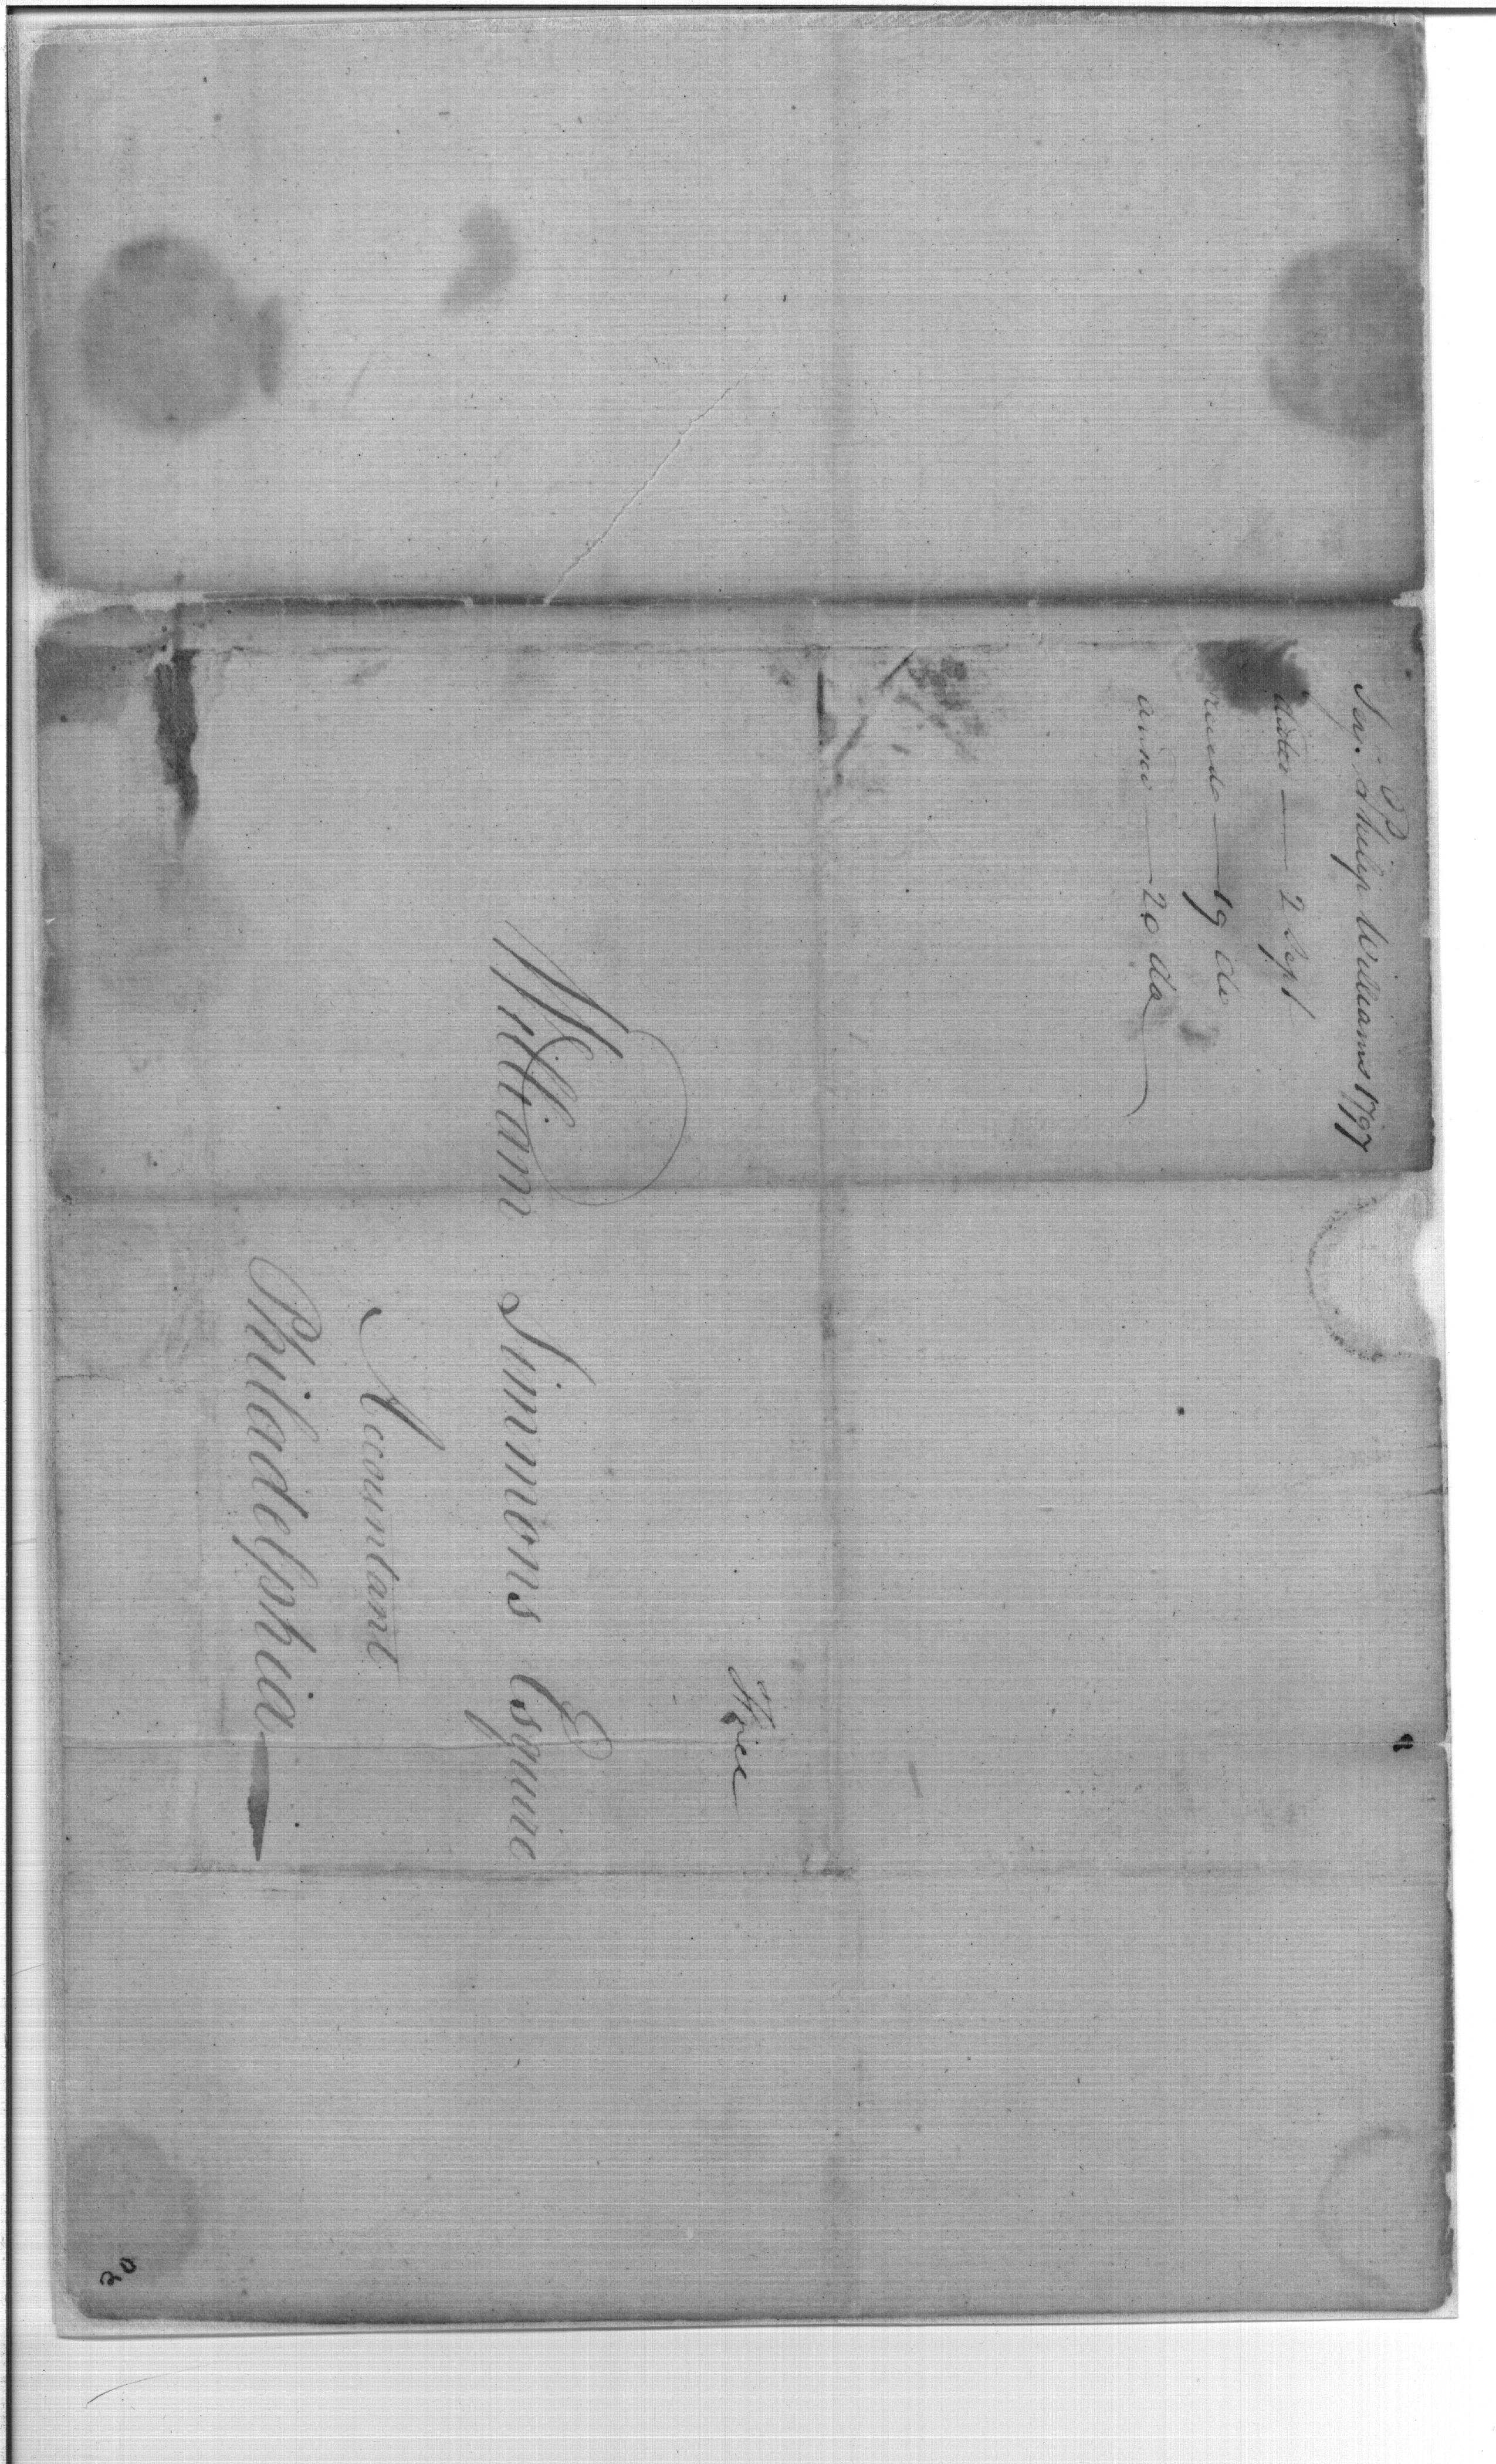 Serj. Philip Williams 1797
dated — 2 Sept
recd — 19 do
answd — 20 do
Free
William Simmons Esquire
Accountant
Philadelphia
20